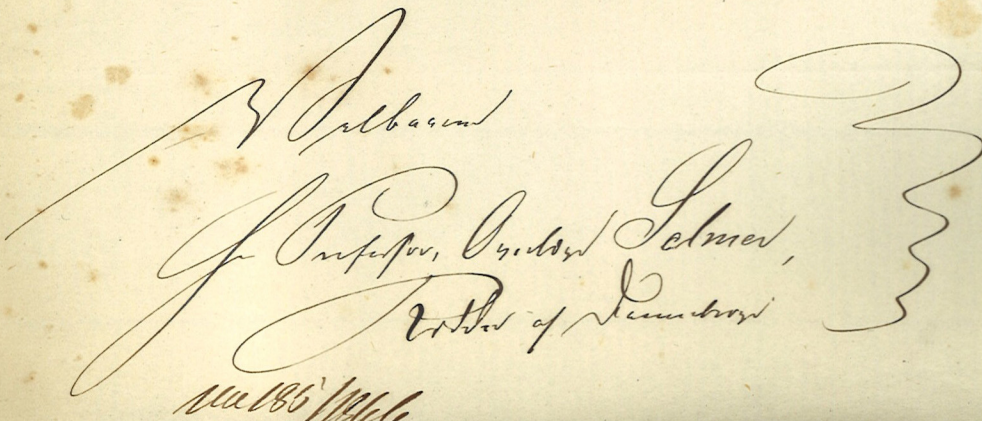 Velbaaren
Hr Professor, Overlæge Selmer,
Ridder af Dannebroge